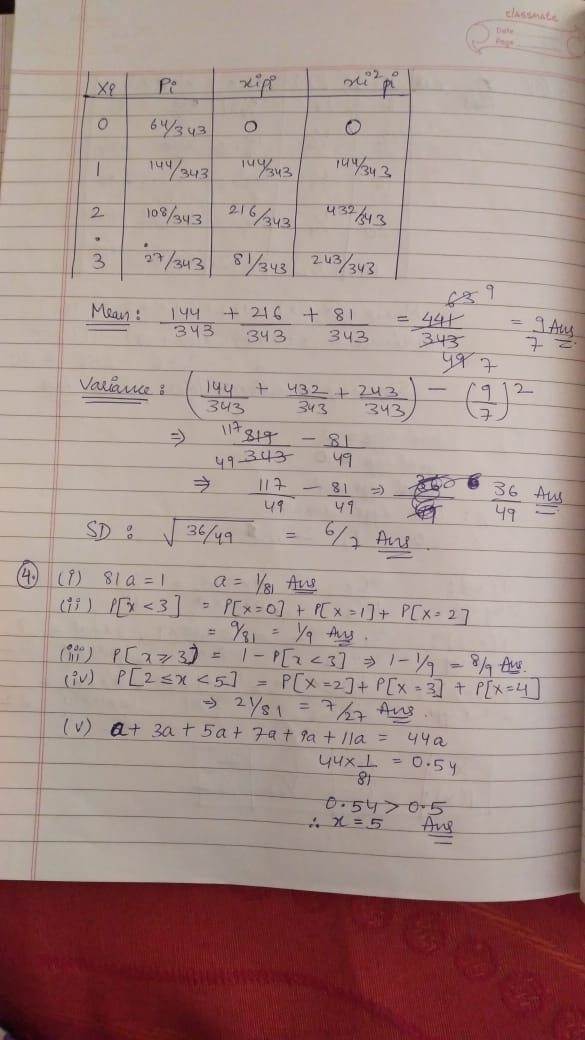 classmate
Date
Page
xi pi xipi xi²pi
0 64/343 0 0
1 144/343 144/343 144/343
2 108/343 216/343 432/343
3 27/343 81/343 243/343
Mean: 144/343 + 216/343 + 81/343 = 441/343 = 9/7 Ans
63 9
49 7
Variance: (144/343 + 432/343 + 243/343) - (9/7)²
⇒ 117 819/49 343 - 81/49
⇒ 117/49 - 81/49 ⇒ 36/49 Ans
SD: √36/49 = 6/7 Ans.
4. (i) 81a = 1 a = 1/81 Ans
(ii) P[x < 3] = P[x=0] + P[x=1] + P[x=2]
= 9/81 = 1/9 Ans.
(iii) P[x ≥ 3] = 1 - P[x < 3] ⇒ 1 - 1/9 = 8/9 Ans.
(iv) P[2 ≤ x < 5] = P[x=2] + P[x=3] + P[x=4]
⇒ 21/81 = 7/27 Ans.
(v) a + 3a + 5a + 7a + 9a + 11a = 44a
44 × 1/81 = 0.54
0.54 > 0.5
∴ x = 5 Ans